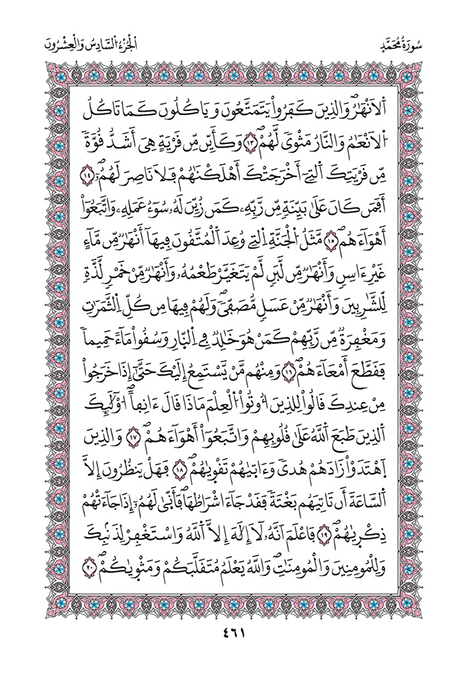 سُورَةُ مُحَمَّدٍ اَلْجُزْءُ السَّادِسُ وَالْعِشْرُونَ
اُ۬لَانْهَٰرُۖ وَالذِينَ كَفَرُواْ يَتَمَتَّعُونَ وَيَاكُلُونَ كَمَا تَاكُلُ
اُ۬لَانْعَٰمُ وَالنَّارُ مَثْويٗ لَّهُمْۖ ١٣ وَكَأَيِّن مِّن قَرْيَةٍ هِيَ أَشَدُّ قُوَّةٗ
مِّن قَرْيَتِكَ اَ۬لتِےٓ أَخْرَجَتْكَ أَهْلَكْنَٰهُمْ فَلَا نَاصِرَ لَهُمْۖ ١٤
أَفَمَن كَانَ عَلَىٰ بَيِّنَةٖ مِّن رَّبِّهِۦ كَمَن زُيِّنَ لَهُۥ سُوٓءُ عَمَلِهِۦ وَاتَّبَعُوٓاْ
أَهْوَآءَهُمْۖ ١٥ مَّثَلُ اُ۬لْجَنَّةِ اِ۬لتِے وُعِدَ اَ۬لْمُتَّقُونَ فِيهَآ أَنْهَٰرٞ مِّن مَّآءٍ
غَيْرِ ءَاسِنٖ وَأَنْهَٰرٞ مِّن لَّبَنٖ لَّمْ يَتَغَيَّرْ طَعْمُهُۥ وَأَنْهَٰرٞ مِّنْ خَمْرٖ لَّذَّةٖ
لِّلشَّٰرِبِينَ وَأَنْهَٰرٞ مِّنْ عَسَلٖ مُّصَفّيٗۖ وَلَهُمْ فِيهَا مِن كُلِّ اِ۬لثَّمَرَٰتِ
وَمَغْفِرَةٞ مِّن رَّبِّهِمْ كَمَنْ هُوَ خَٰلِدٞ فِے اِ۬لنّ۪ارِ وَسُقُواْ مَآءً حَمِيماٗ
فَقَطَّعَ أَمْعَآءَهُمْۖ ١٦ وَمِنْهُم مَّنْ يَّسْتَمِعُ إِلَيْكَ حَتَّىٰٓ إِذَا خَرَجُواْ
مِنْ عِندِكَ قَالُواْ لِلذِينَ أُوتُواْ اُ۬لْعِلْمَ مَاذَا قَالَ ءَانِفاًۖ ا۟وْلَٰٓئِكَ
اَ۬لذِينَ طَبَعَ اَ۬للَّهُ عَلَىٰ قُلُوبِهِمْ وَاتَّبَعُوٓاْ أَهْوَآءَهُمْۖ ١٧ وَالذِينَ
اَ۪هْتَدَوْاْ زَادَهُمْ هُديٗ وَءَات۪يٰهُمْ تَقْو۪يٰهُمْۖ ١٨ فَهَلْ يَنظُرُونَ إِلَّا
اَ۬لسَّاعَةَ أَن تَاتِيَهُم بَغْتَةٗۖ فَقَدْ جَآءَ اشْرَاطُهَاۖ فَأَنّ۪يٰ لَهُمُۥٓ إِذَا جَآءَتْهُمْ
ذِكْر۪يٰهُمْۖ ١٩ فَاعْلَمَ اَنَّهُۥ لَآ إِلَٰهَ إِلَّا اَ۬للَّهُۖ وَاسْتَغْفِرْ لِذَنۢبِكَ
وَلِلْمُومِنِينَ وَالْمُومِنَٰتِۖ وَاللَّهُ يَعْلَمُ مُتَقَلَّبَكُمْ وَمَثْو۪يٰكُمْۖ ٢٠
٤٦١